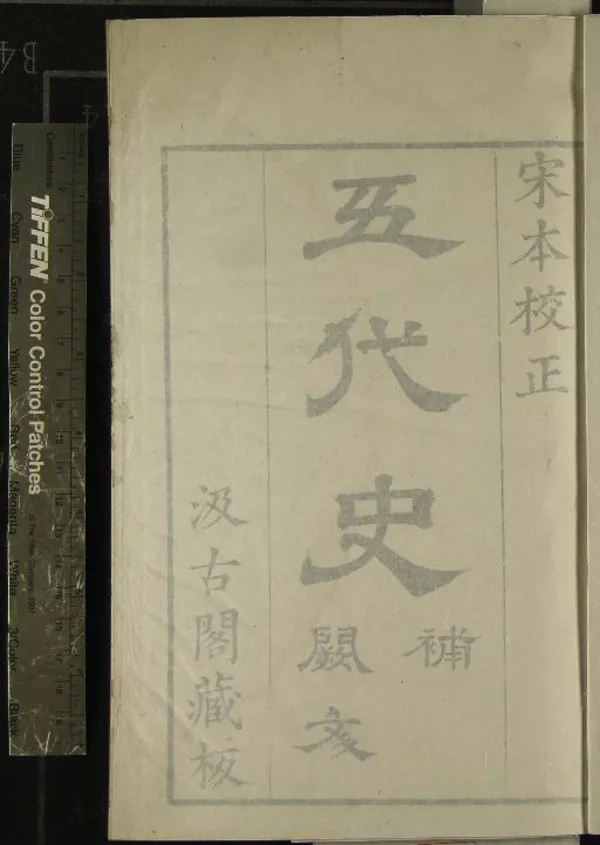 宋本校正
五代史
補
闕文
汲古閣藏板
TIFFEN Color Control Patches
© The Tiffen Company, 2007
Centimetres
Blue Cyan Green Yellow Red Magenta White 3/Color Black